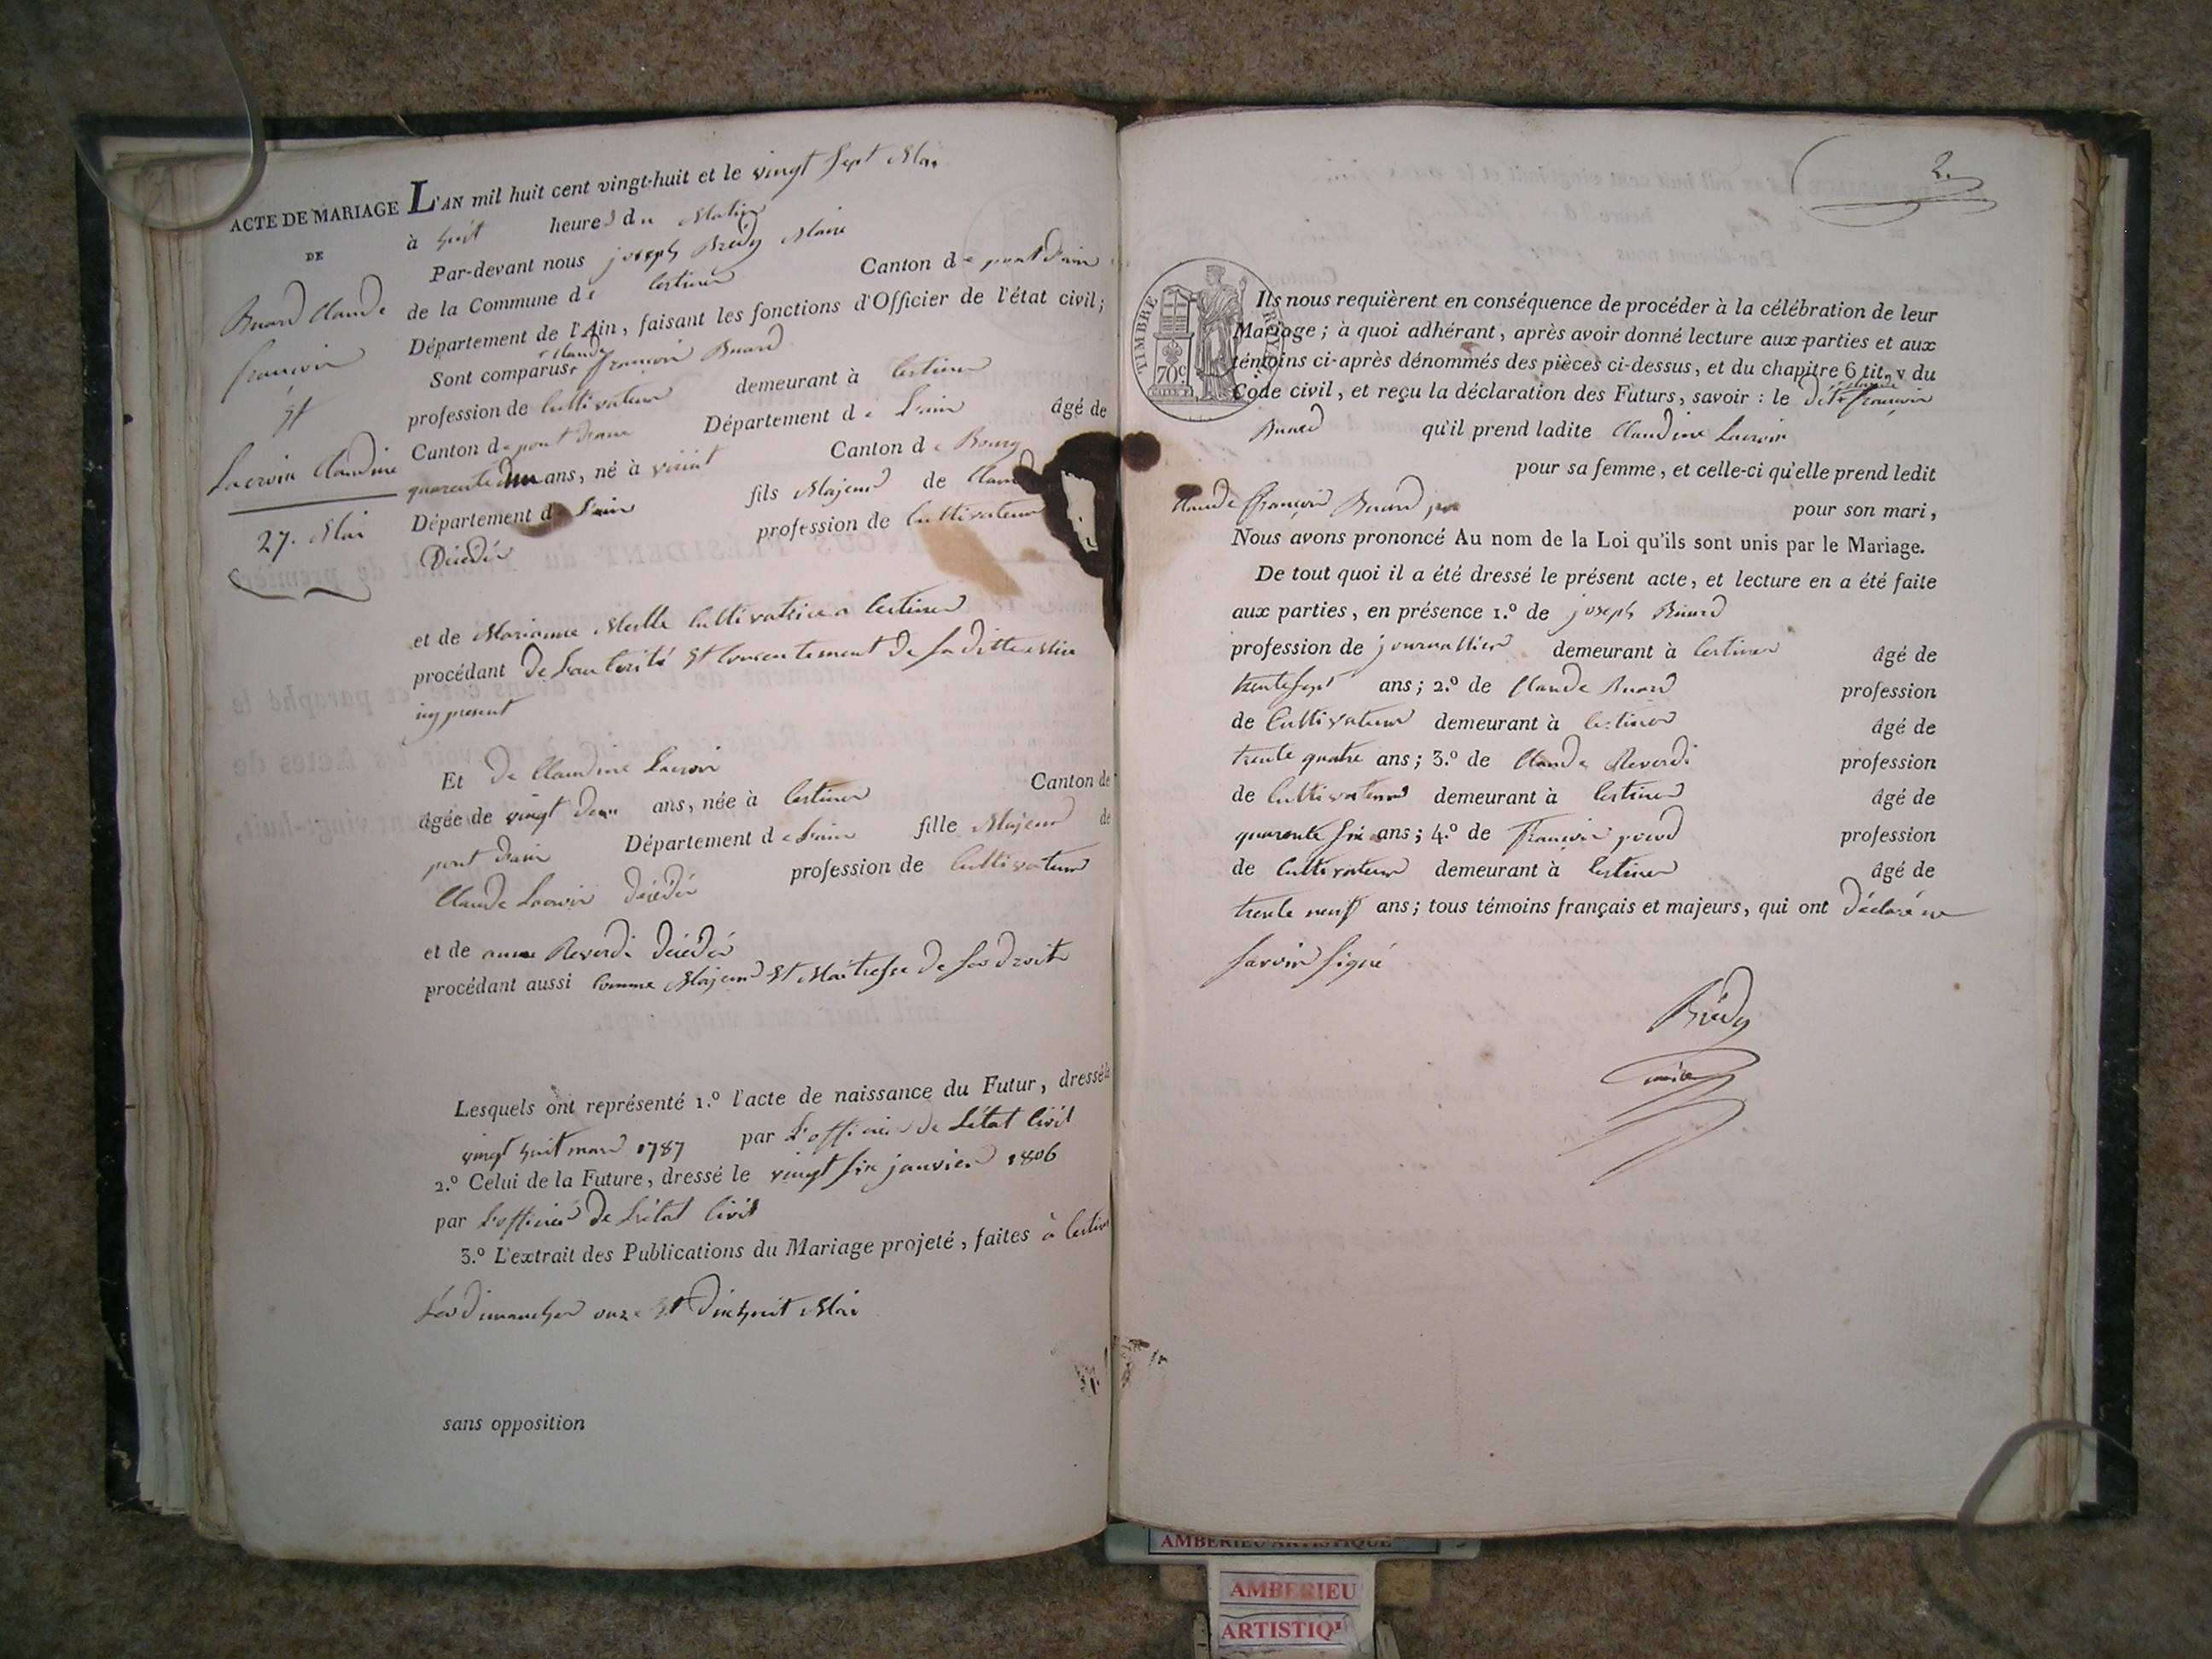 ACTE DE MARIAGE
DE
Buard Claude
françois
et
Lacroix Claudine
27. Mai
L'AN mil huit cent vingt-huit et le vingt sept Mai
à huit heures du Matin
Par-devant nous joseph Maire
de la Commune de Certines Canton de pont d'ain
Département de l'Ain, faisant les fonctions d'Officier de l'état civil;
Sont comparus Claude françois Buard
profession de Cultivateur demeurant à Certines
Canton de pont d'ain Département de L'ain âgé de
quarente ans, né à Canton de Bourg
Département de L'ain fils Majeur de
Décédé profession de Cultivateur
et de Marianne Cultivatrice a Certines
procédant de L'autorité et Consentement de sa ditte
icy present
Et de Claudine Lacroix
âgée de vingt deux ans, née à Certines Canton de
pont d'ain Département de L'ain fille Majeur de
Claude Lacroix décédé profession de Cultivateur
et de anne Reverdi décédée
procédant aussi Comme Majeur et Maitresse de ses droits
Lesquels ont représenté 1.º l'acte de naissance du Futur, dressé le
vingt huit mars 1787 par L'officier de L'état Civil
2.º Celui de la Future, dressé le vingt six janvier 1806
par L'officier de L'état Civil
3.º L'extrait des Publications du Mariage projeté, faites à Certines
Les dimanches onze et dixhuit Mai
sans opposition
2.
TIMBRE ROYAL
70c
Ils nous requièrent en conséquence de procéder à la célébration de leur
Mariage; à quoi adhérant, après avoir donné lecture aux parties et aux
témoins ci-après dénommés des pièces ci-dessus, et du chapitre 6 tit. v du
Code civil, et reçu la déclaration des Futurs, savoir: le dit Claude françois
Buard qu'il prend ladite Claudine Lacroix
pour sa femme, et celle-ci qu'elle prend ledit
Claude françois Buard pour son mari,
Nous avons prononcé Au nom de la Loi qu'ils sont unis par le Mariage.
De tout quoi il a été dressé le présent acte, et lecture en a été faite
aux parties, en présence 1.º de joseph Buard
profession de journallier demeurant à Certines âgé de
trente sept ans; 2.º de Claude Buard profession
de Cultivateur demeurant à Certines âgé de
trente quatre ans; 3.º de Claude Reverdi profession
de Cultivateur demeurant à Certines âgé de
quarente six ans; 4.º de françois profession
de Cultivateur demeurant à Certines âgé de
trente neuf ans; tous témoins français et majeurs, qui ont déclaré ne
savoir signé
maire
AMBERIEU ARTISTIQUE
AMBERIEU
ARTISTIQU